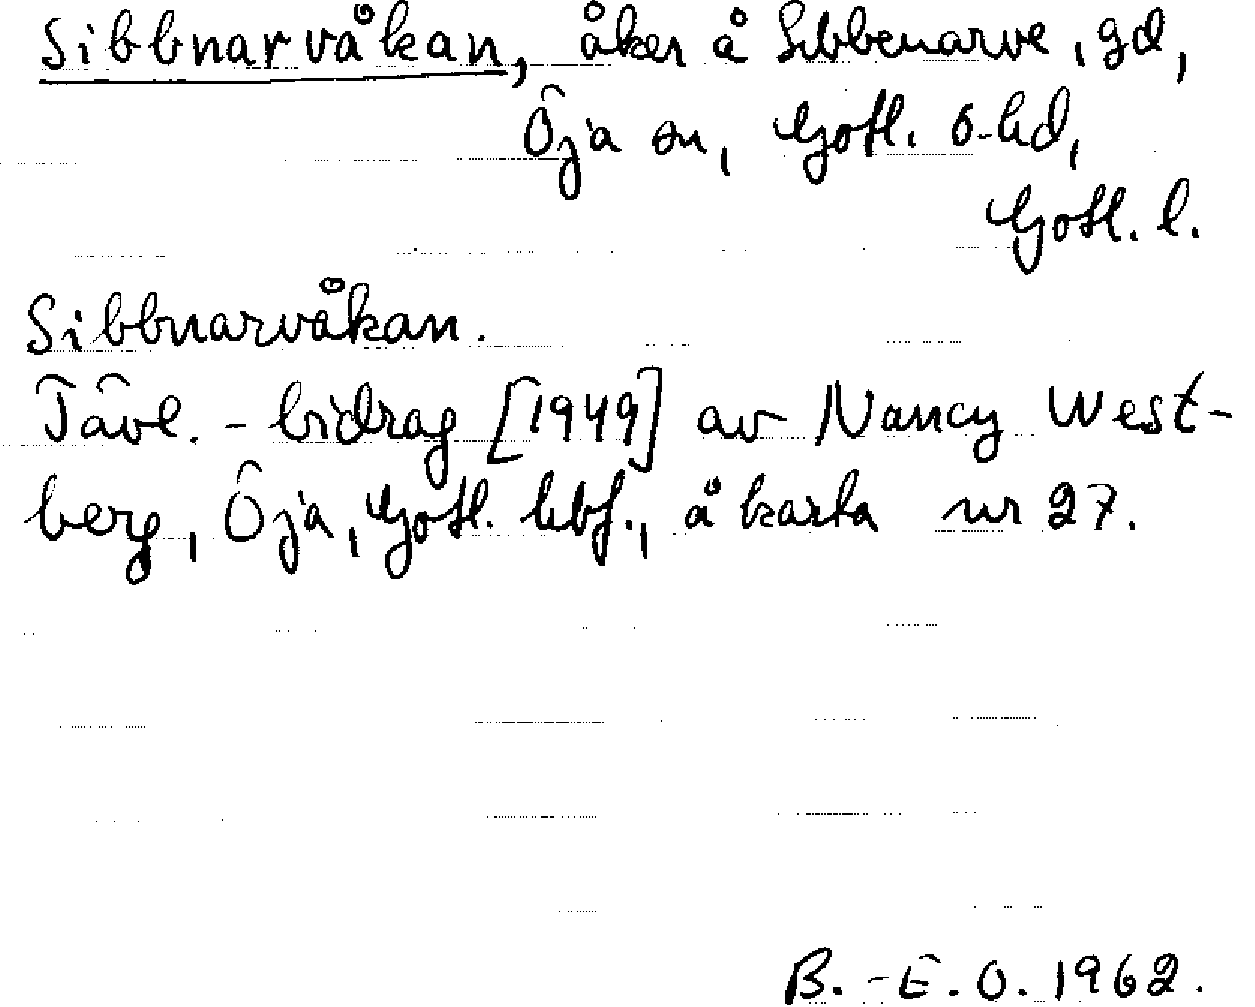 Sibbnarvåkan, åker å Sibbenarve, gd,
Öja sn, Gotl. s. hd,
Gotl. l.
Sibbnarvåkan.
Tävl. - bidrag [1949] av Nancy West-
berg, Öja, Gotl. hbf., å karta nr 27.
B. - E. O. 1962.